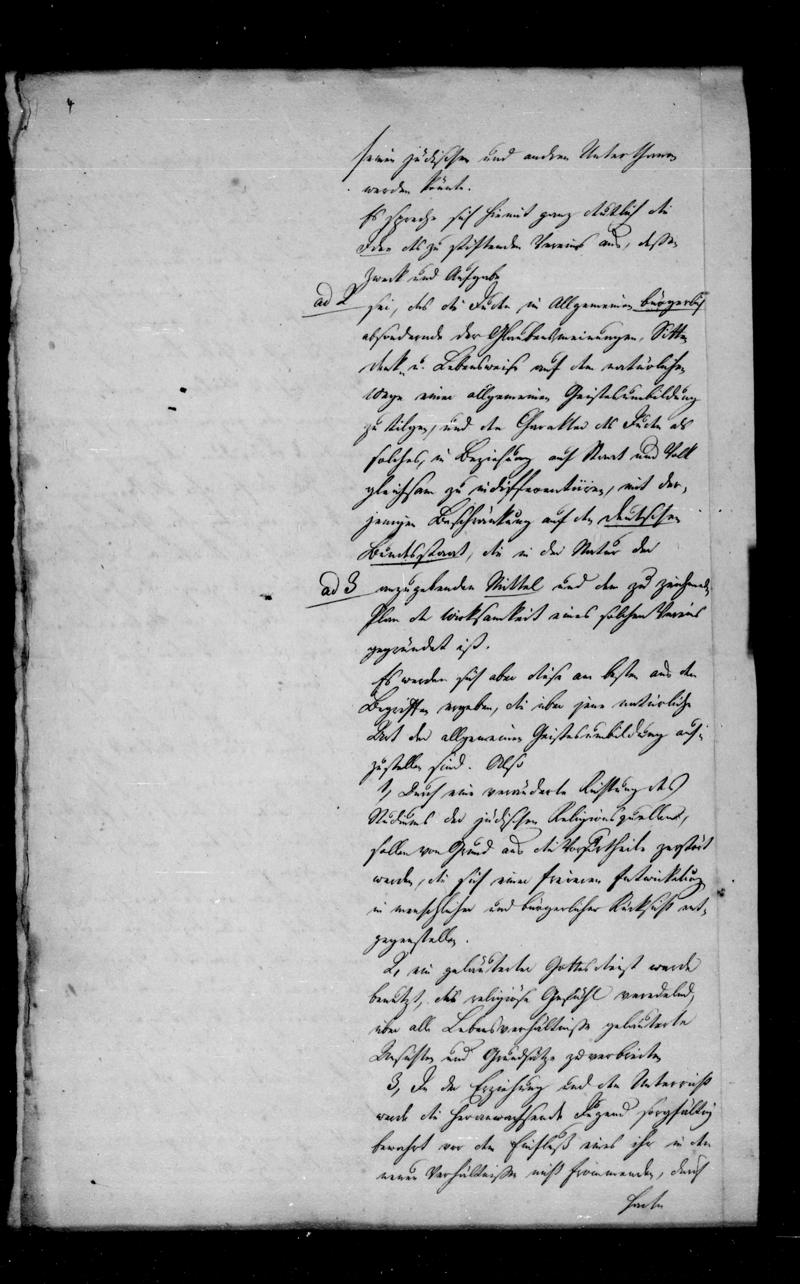 4
seinen jüdischen und andren Unterthanen
werden könnte.
Es spreche sich hiemit ganz deutlich die
Idee des zu stiftenden Vereins aus, deßen
Zweck und Aufgabe
ad 2 sei, das die Juden im Allgemeinen bürgerlich
absondernde der Glaubensmeinungen, Sitten
denk- u. Lebensweise auf dem natürlichen
Wege einer allgemeinen Geistesumbildung
zu tilgen, und den Charakter des Juden als
solches, in Beziehung auf Staat und Volk
gleichsam zu indifferentiiren, mit der-
jenigen Beschränkung auf den deutschen
Bundesstaat, die in der Natur der
ad 3 anzugebenden Mittel und dem zu zeichnenden
Plan der Wirksamkeit eines solchen Vereins
gegründet ist.
Es werden sich aber diese am besten aus den
Begriffen ergeben, die über jene natürliche
Art der allgemeinen Geistesumbildung auf-
zustellen sind. Als
1, Durch eine veränderte Richtung des
Studiums der jüdischen Religionsquellen,
sollen von Grund aus die Vorurtheile zerstört
werden, die sich einer freieren Entwickelung
in menschlicher und bürgerlicher Rücksicht ent-
gegenstellen.
2, ein geläuterter Gottesdienst werde
benutzt, das religiöse Gefühl veredelnd,
über alle Lebensverhältniße geläuterte
Ansichten und Grundsätze zu verbreiten
3, In der Erziehung und dem Unterricht
werde die heranwachsende Jugend sorgfältig
bewahrt vor dem Einfluß eines ihr in den
neuen Verhältnißen nicht frommenden, durch